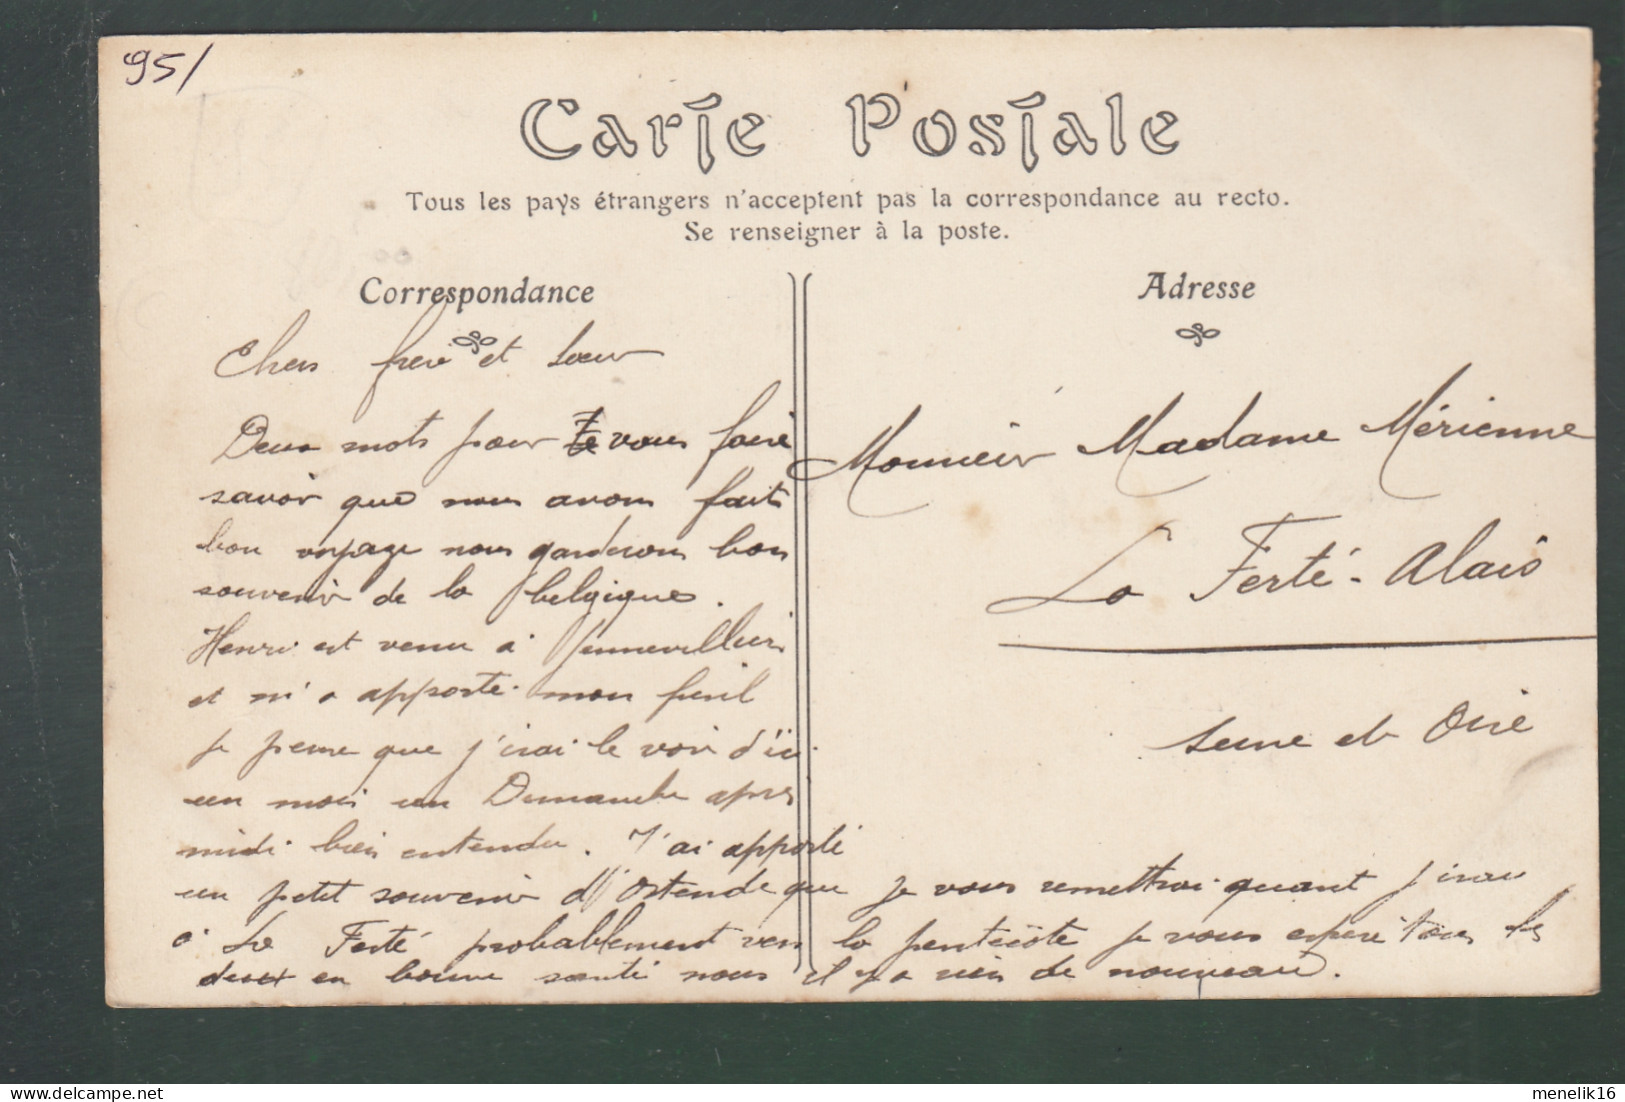 95/
Carte Postale
Tous les pays étrangers n'acceptent pas la correspondance au recto.
Se renseigner à la poste.
Correspondance
Chers frere et soeur
Deux mots pour te vous faire
savoir que nous avons fait
bon voyage nous garderons bon
souvenir de la belgique.
Henri est venu à Jennevilliers
et m'a apporté mon fusil
je pense que j'irai le voir d'ici
un mois un Dimanche apres
midi bien entendu. J'ai apporté
un petit souvenir d'Ostende que je vous remettrai quant j'irai
a La Ferté probablement vers la pentecôte je vous espere tous les
deux en bonne santé nous il y a rien de nouveau.
Adresse
Monsieur Madame Mérienne
La Ferté-Alais
Seine et Oise
delcampe.net
menelik16